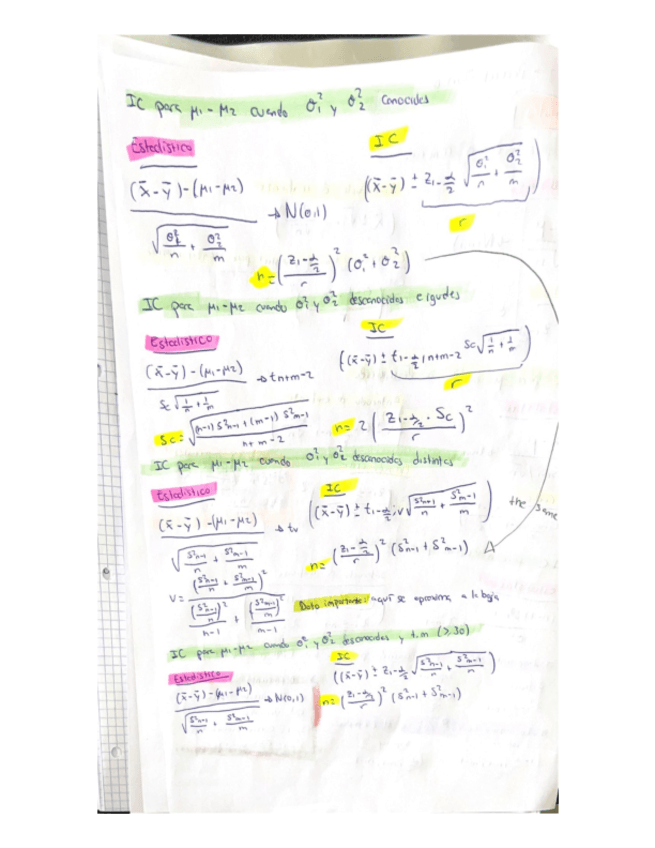 IC para μ1-μ2 cuando σ₁² y σ₂² Conocidas
Estadístico
IC
(x̄-ȳ)-(μ1-μ2) / √(σ₁²/n + σ₂²/m) → N(0,1)
((x̄-ȳ) ± z1-α/2 √(σ₁²/n + σ₂²/m))
r
n = (z1-α/2 / r)² (σ₁²+σ₂²)
IC para μ1-μ2 cuando σ₁² y σ₂² desconocidas e iguales
Estadístico
IC
(x̄-ȳ)-(μ1-μ2) / Sc √(1/n + 1/m) → tn+m-2
((x̄-ȳ) ± t1-α/2, n+m-2 Sc √(1/n + 1/m))
r
Sc = √((n-1) S²n-1 + (m-1) S²m-1 / n+m-2)
n = 2 (z1-α/2 · Sc / r)²
IC para μ1-μ2 cuando σ₁² y σ₂² desconocidas distintas
Estadístico
IC
(x̄-ȳ)-(μ1-μ2) / √(S²n-1/n + S²m-1/m) → tv
((x̄-ȳ) ± t1-α/2; v √(S²n-1/n + S²m-1/m))
the same
n = (z1-α/2 / r)² (S²n-1 + S²m-1)
V = (S²n-1/n + S²m-1/m)² / ((S²n-1/n)²/n-1 + (S²m-1/m)²/m-1)
Dato importante: aquí se aproxima a la baja
IC para μ1-μ2 cuando σ₁² y σ₂² desconocidas y t.m (>30)
Estadístico
IC
(x̄-ȳ)-(μ1-μ2) / √(S²n-1/n + S²m-1/m) → N(0,1)
((x̄-ȳ) ± z1-α/2 √(S²n-1/n + S²m-1/m))
n = (z1-α/2 / r)² (S²n-1 + S²m-1)